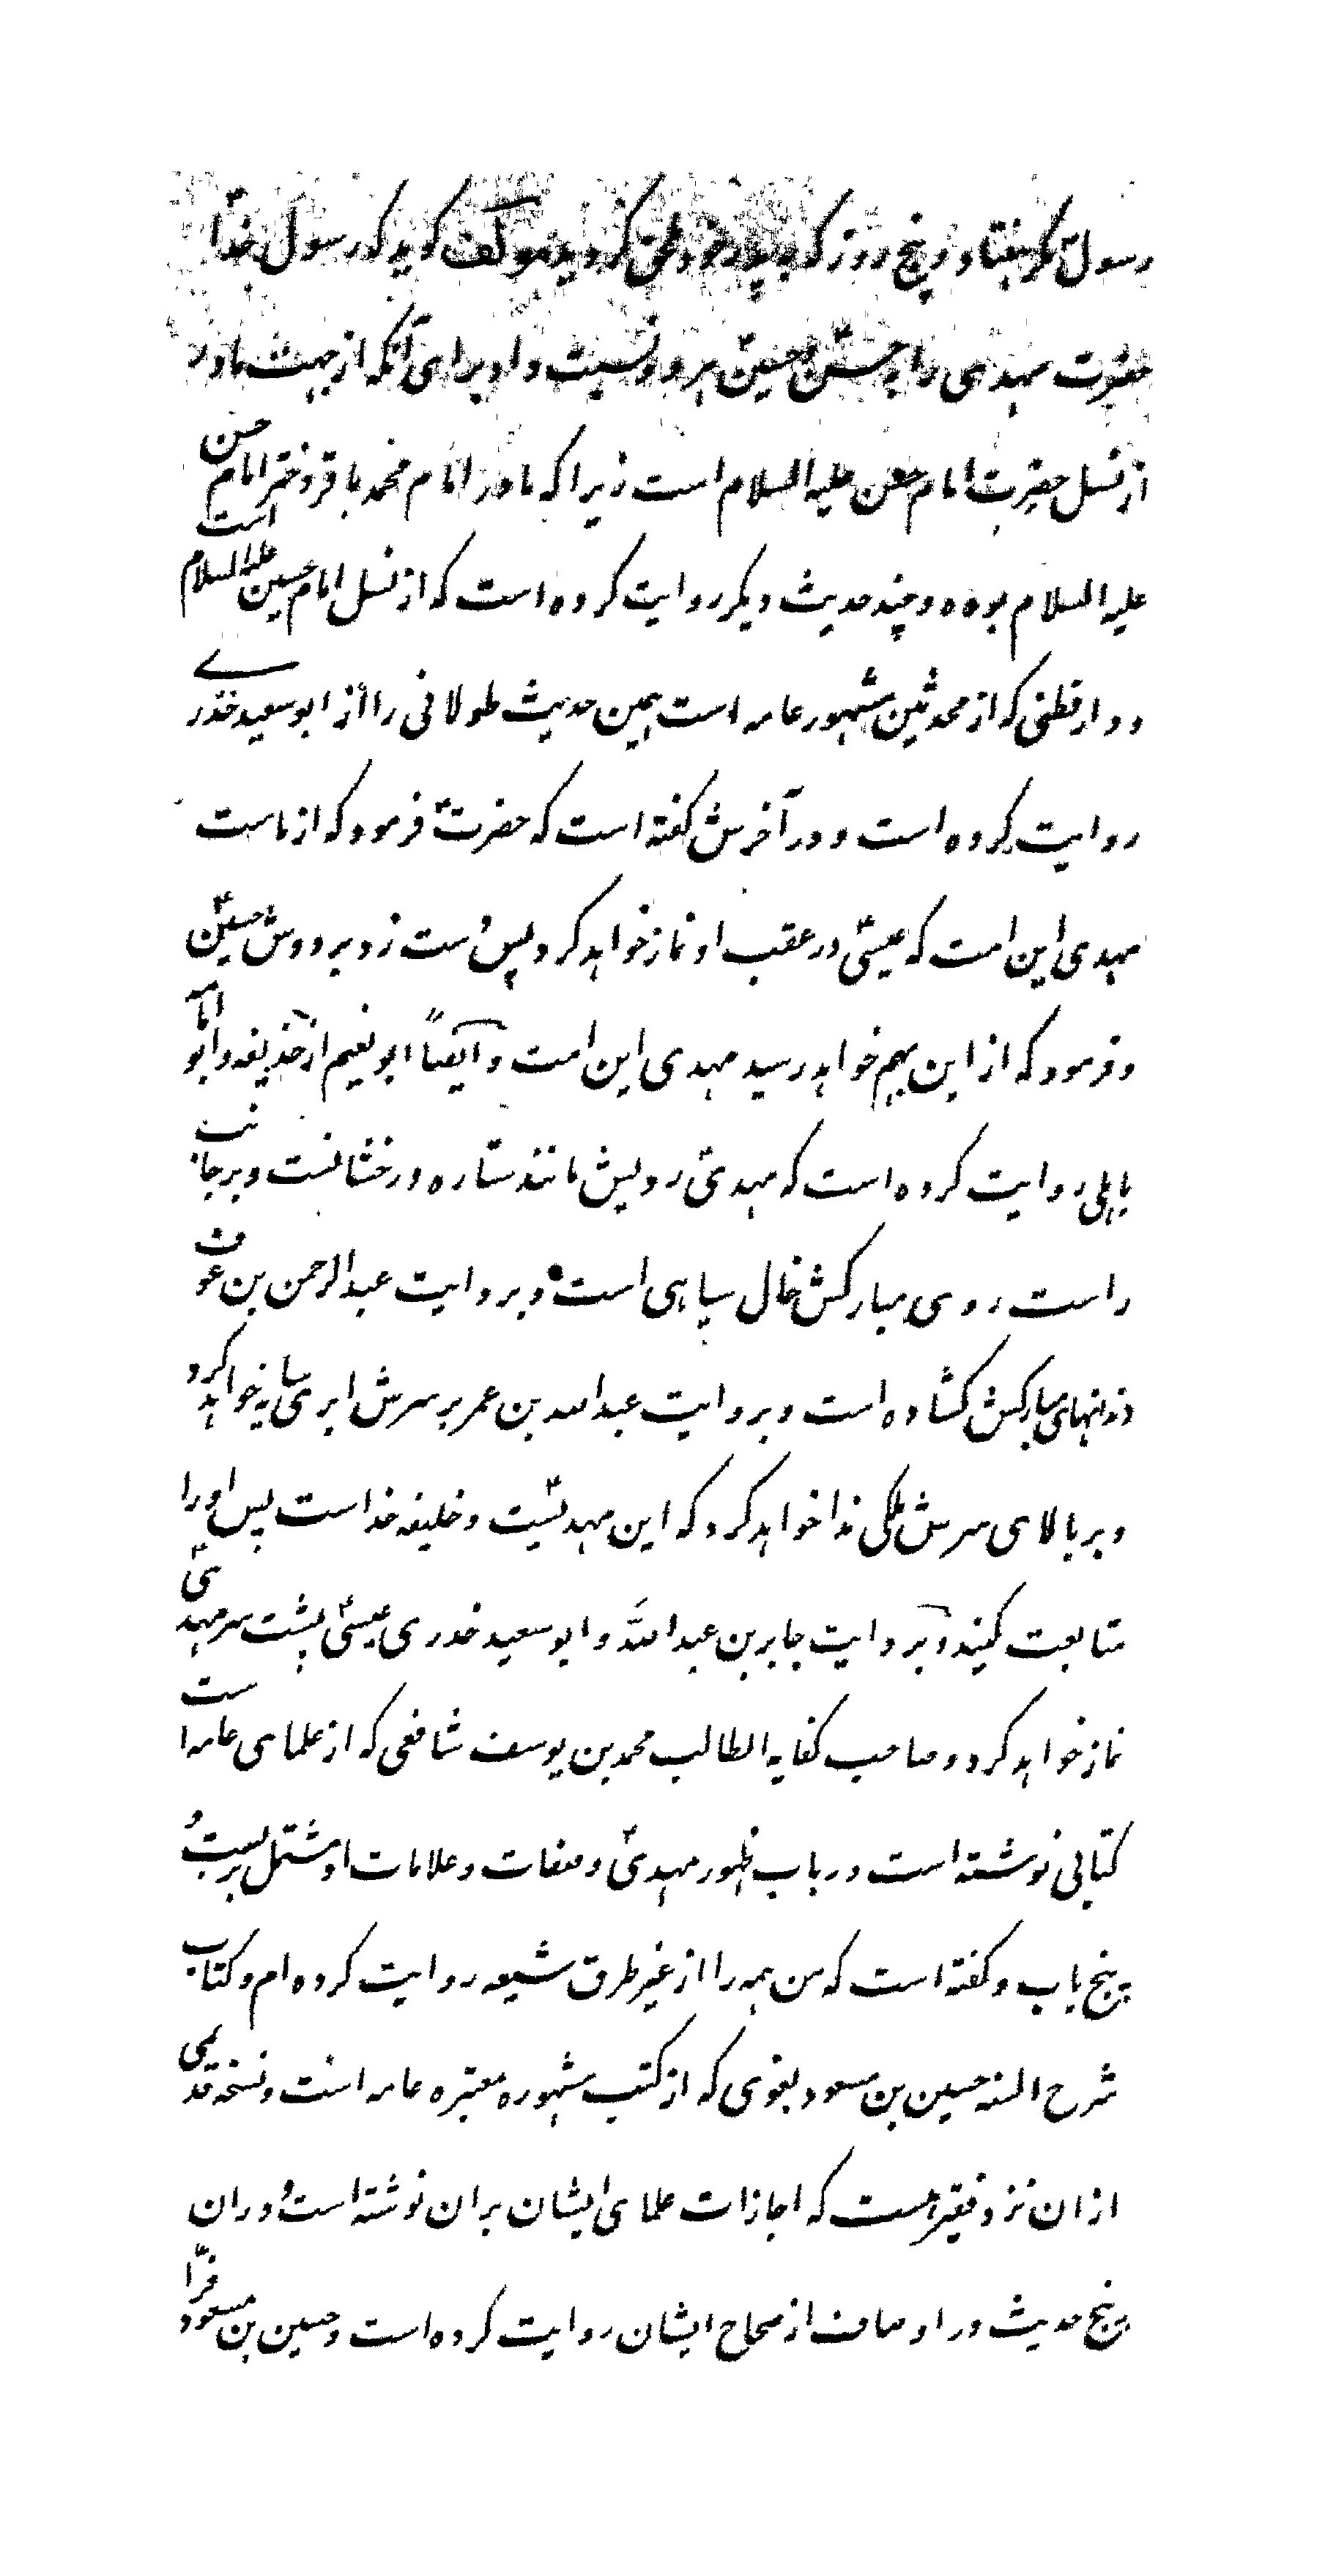 رسول مگر هفتاد و پنج روز که به پدر خود ملحق کردید مولف کوید که رسول خدا
حضرت مهدی را به حسنؑ و حسینؑ هر دو نسبت داد برای آنکه از جهت مادر
از نسل حضرت امام حسن علیه السلام است زیرا که مادر امام محمد باقر دختر امام حسن
علیه السلام بوده و چند حدیث دیکر روایت کرده است که از نسل امام حسین علیه السلام است
و دارقطنی که از محدثین مشهور عامه است همین حدیث طولانی را از ابو سعید خدری
روایت کرده است و در آخرش کفته است که حضرتؐ فرمود که از ماست
مهدی این امت که عیسیؑ در عقب او نماز خواهد کرد پس دست زد بر دوش حسینؑ
و فرمود که از این بهم خواهد رسید مهدی این امت و ایضاً ابو نعیم از حذیفه و ابو امامه
باهلی روایت کرده است که مهدیؑ رویش مانند ستاره درخشانست و بر جانب
راست روی مبارکش خال سیاهی است و بر روایت عبد الرحمن بن عوف
دندانهای مبارکش کشاده است و بر روایت عبد الله بن عمر بر سرش ابری سایه خواهد کرد
و بر بالای سرش ملکی ندا خواهد کرد که این مهدیست و خلیفه خداست پس او را
متابعت کنید و بر روایت جابر بن عبد الله و ابو سعید خدری عیسیؑ پشت سر مهدیؑ
نماز خواهد کرد و صاحب کفایه الطالب محمد بن یوسف شافعی که از علمای عامه است
کتابی نوشته است در باب ظهور مهدیؑ و صفات و علامات او مشتمل بر بیست و
پنج باب و کفته است که من همه را از غیر طرق شیعه روایت کرده ام و کتاب
شرح السنه حسین بن مسعود بغوی که از کتب مشهوره معتبره عامه است و نسخه قدیمی
از ان نزد فقیر هست که اجازات علمای ایشان بران نوشته است و دران
پنج حدیث در اوصاف از صحاح ایشان روایت کرده است و حسین بن مسعود فرّا